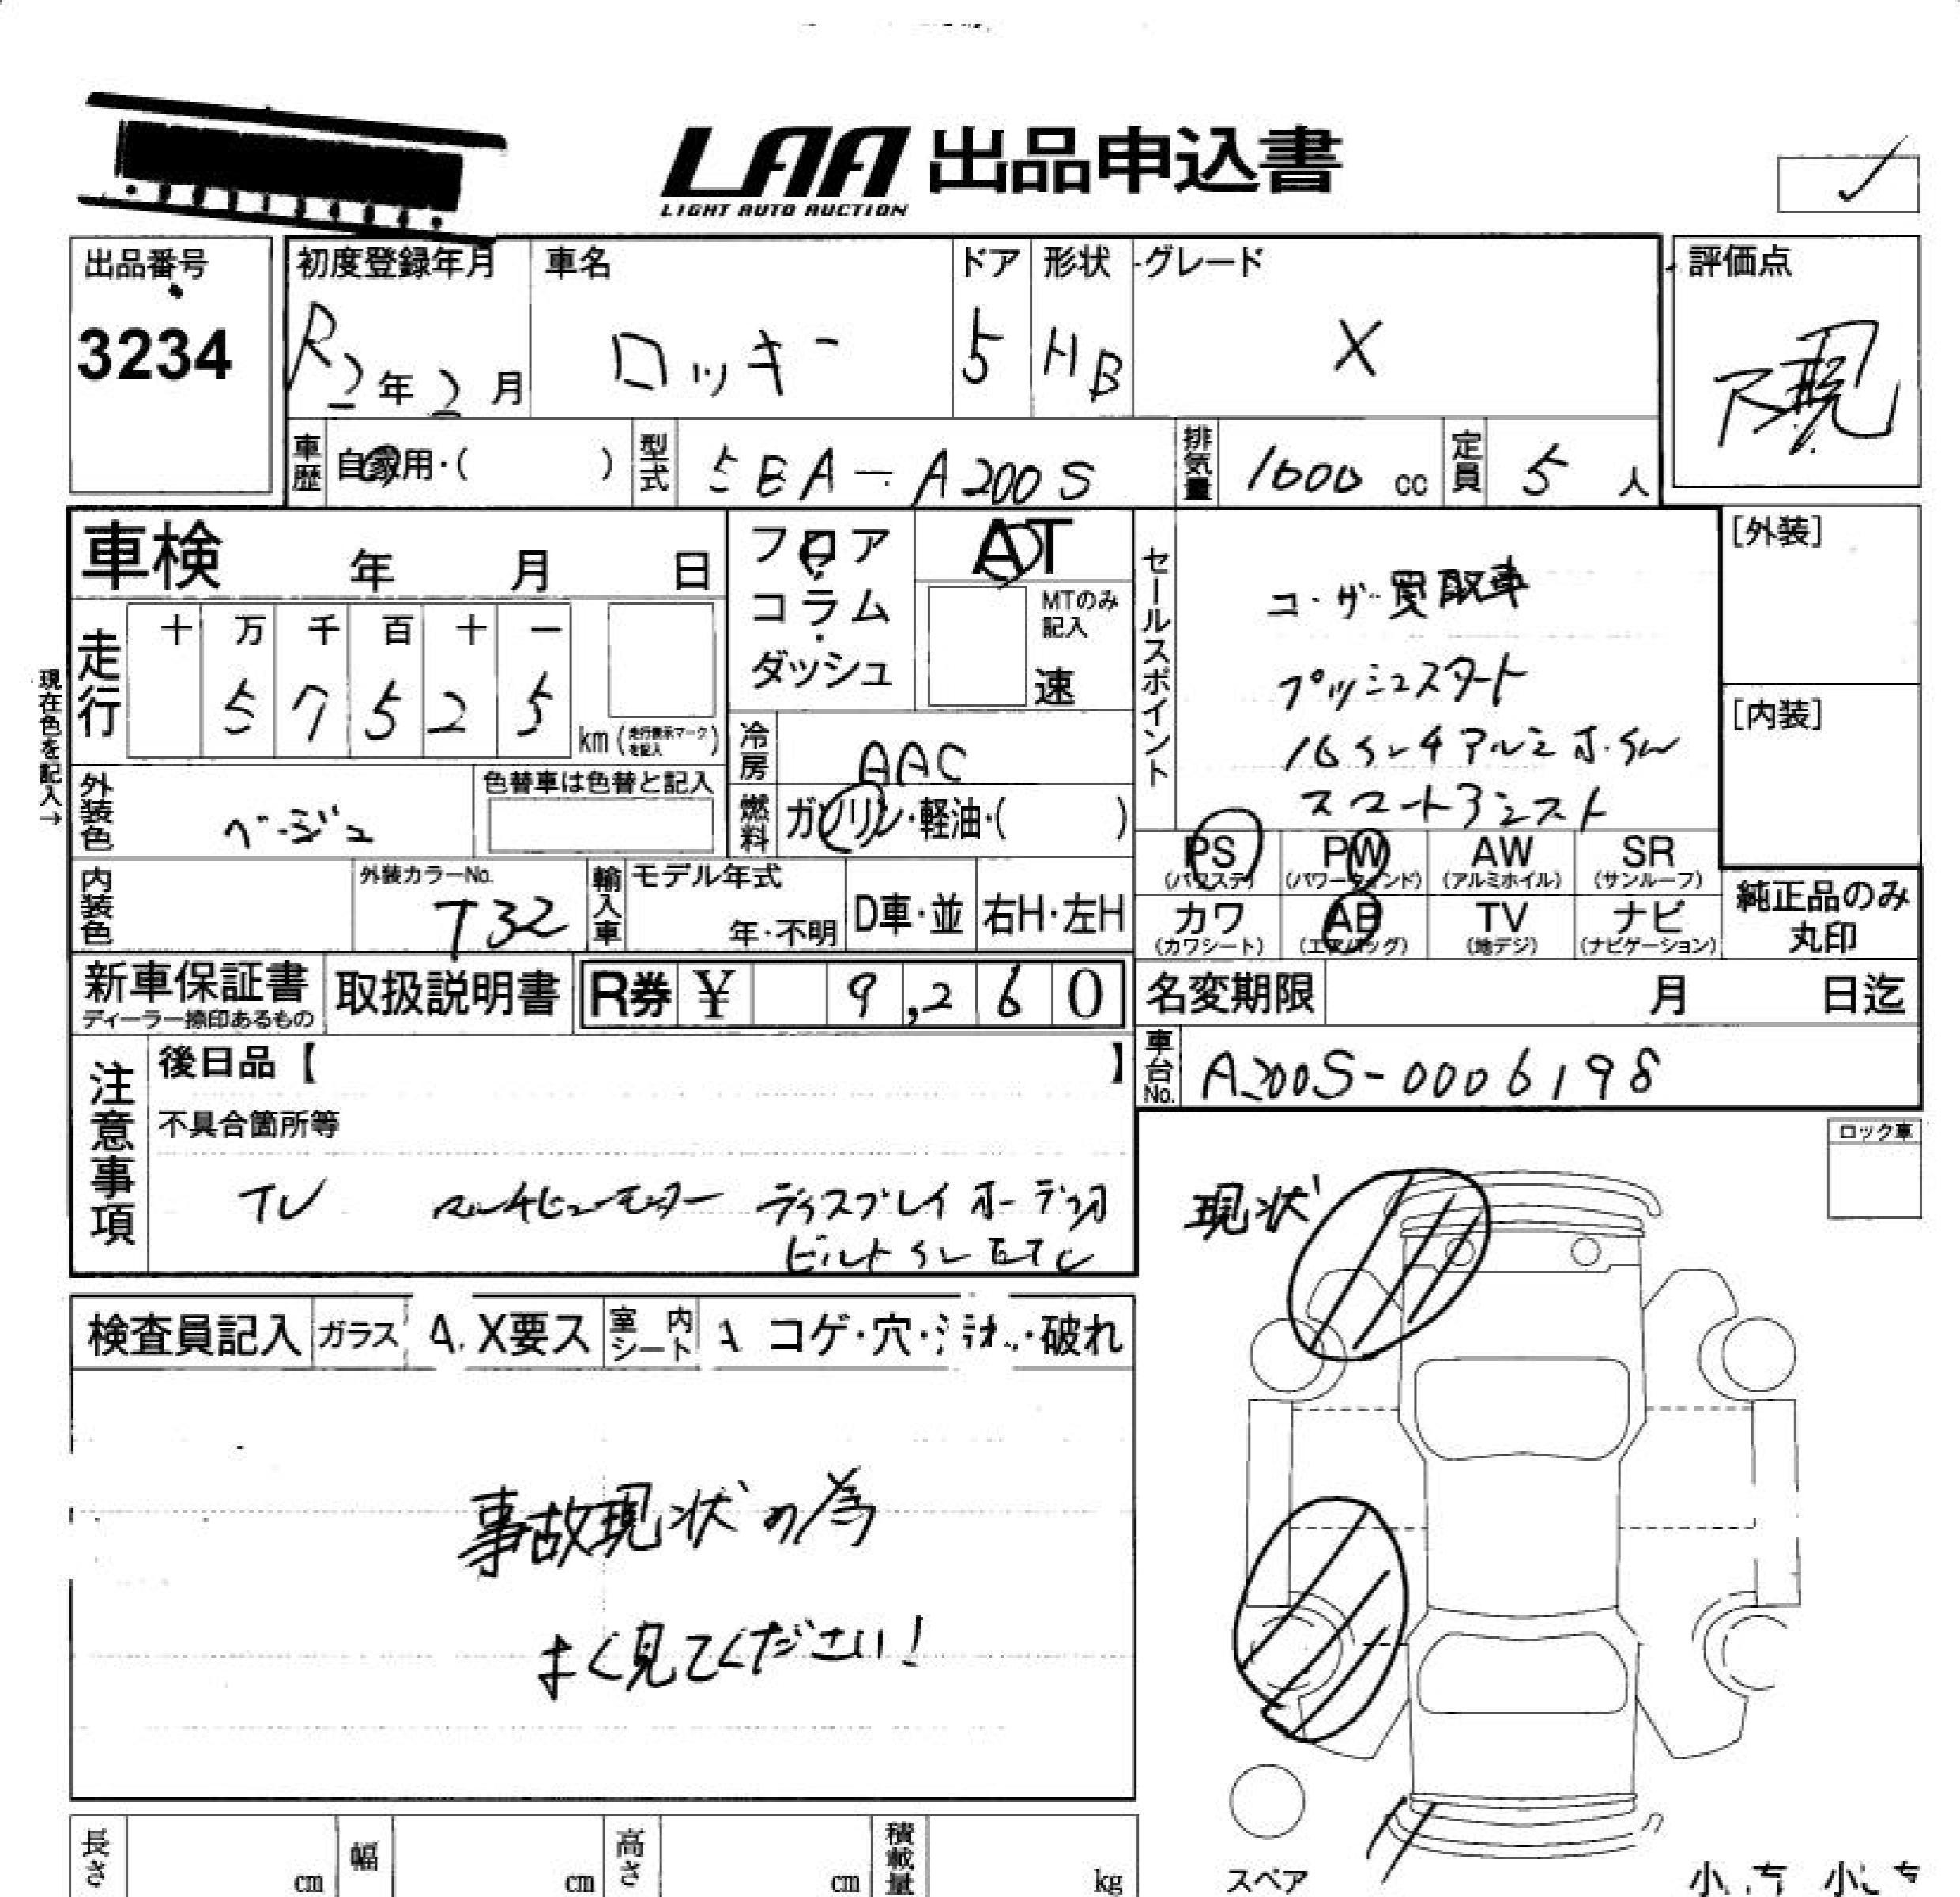 LAA 出品申込書
LIGHT AUTO AUCTION
出品番号
3234
初度登録年月
R2年2月
車名
ロッキー
ドア
5
形状
HB
グレード
X
評価点
R現
車歴
自家用・( )
型式
5BA-A200S
排気量
1000 cc
定員
5 人
車検 年 月 日
フロア
・
コラム
・
ダッシュ
AT
MTのみ
記入
速
セールスポイント
ユーザー買取車
プッシュスタート
16インチアルミホイル
スマートアシスト
[外装]
[内装]
現在色を記入→
走行
十 万 千 百 十 一
5 7 5 2 5
km (走行表示マークを記入)
冷房
AAC
燃料
ガソリン・軽油・( )
外装色
ベージュ
色替車は色替と記入
内装色
外装カラーNo.
T32
輸入車
モデル年式
年・不明
D車・並
右H・左H
PS (パワステ)
PW (パワーウィンド)
AW (アルミホイル)
SR (サンルーフ)
カワ (カワシート)
AB (エアバッグ)
TV (地デジ)
ナビ (ナビゲーション)
純正品のみ
丸印
新車保証書
ディーラー捺印あるもの
取扱説明書
R券 ¥ 9,260
名変期限 月 日迄
車台No.
A200S-0006198
注意事項
後日品【 】
不具合箇所等
TV マルチビューモニター ディスプレイオーディオ
ビルトインETC
ロック車
現状
検査員記入
ガラス
A. X要ス
室内シート
コゲ・穴・汚れ・破れ
事故現状の為
よく見てください!
長さ cm
幅 cm
高さ cm
積載量 kg
スペア